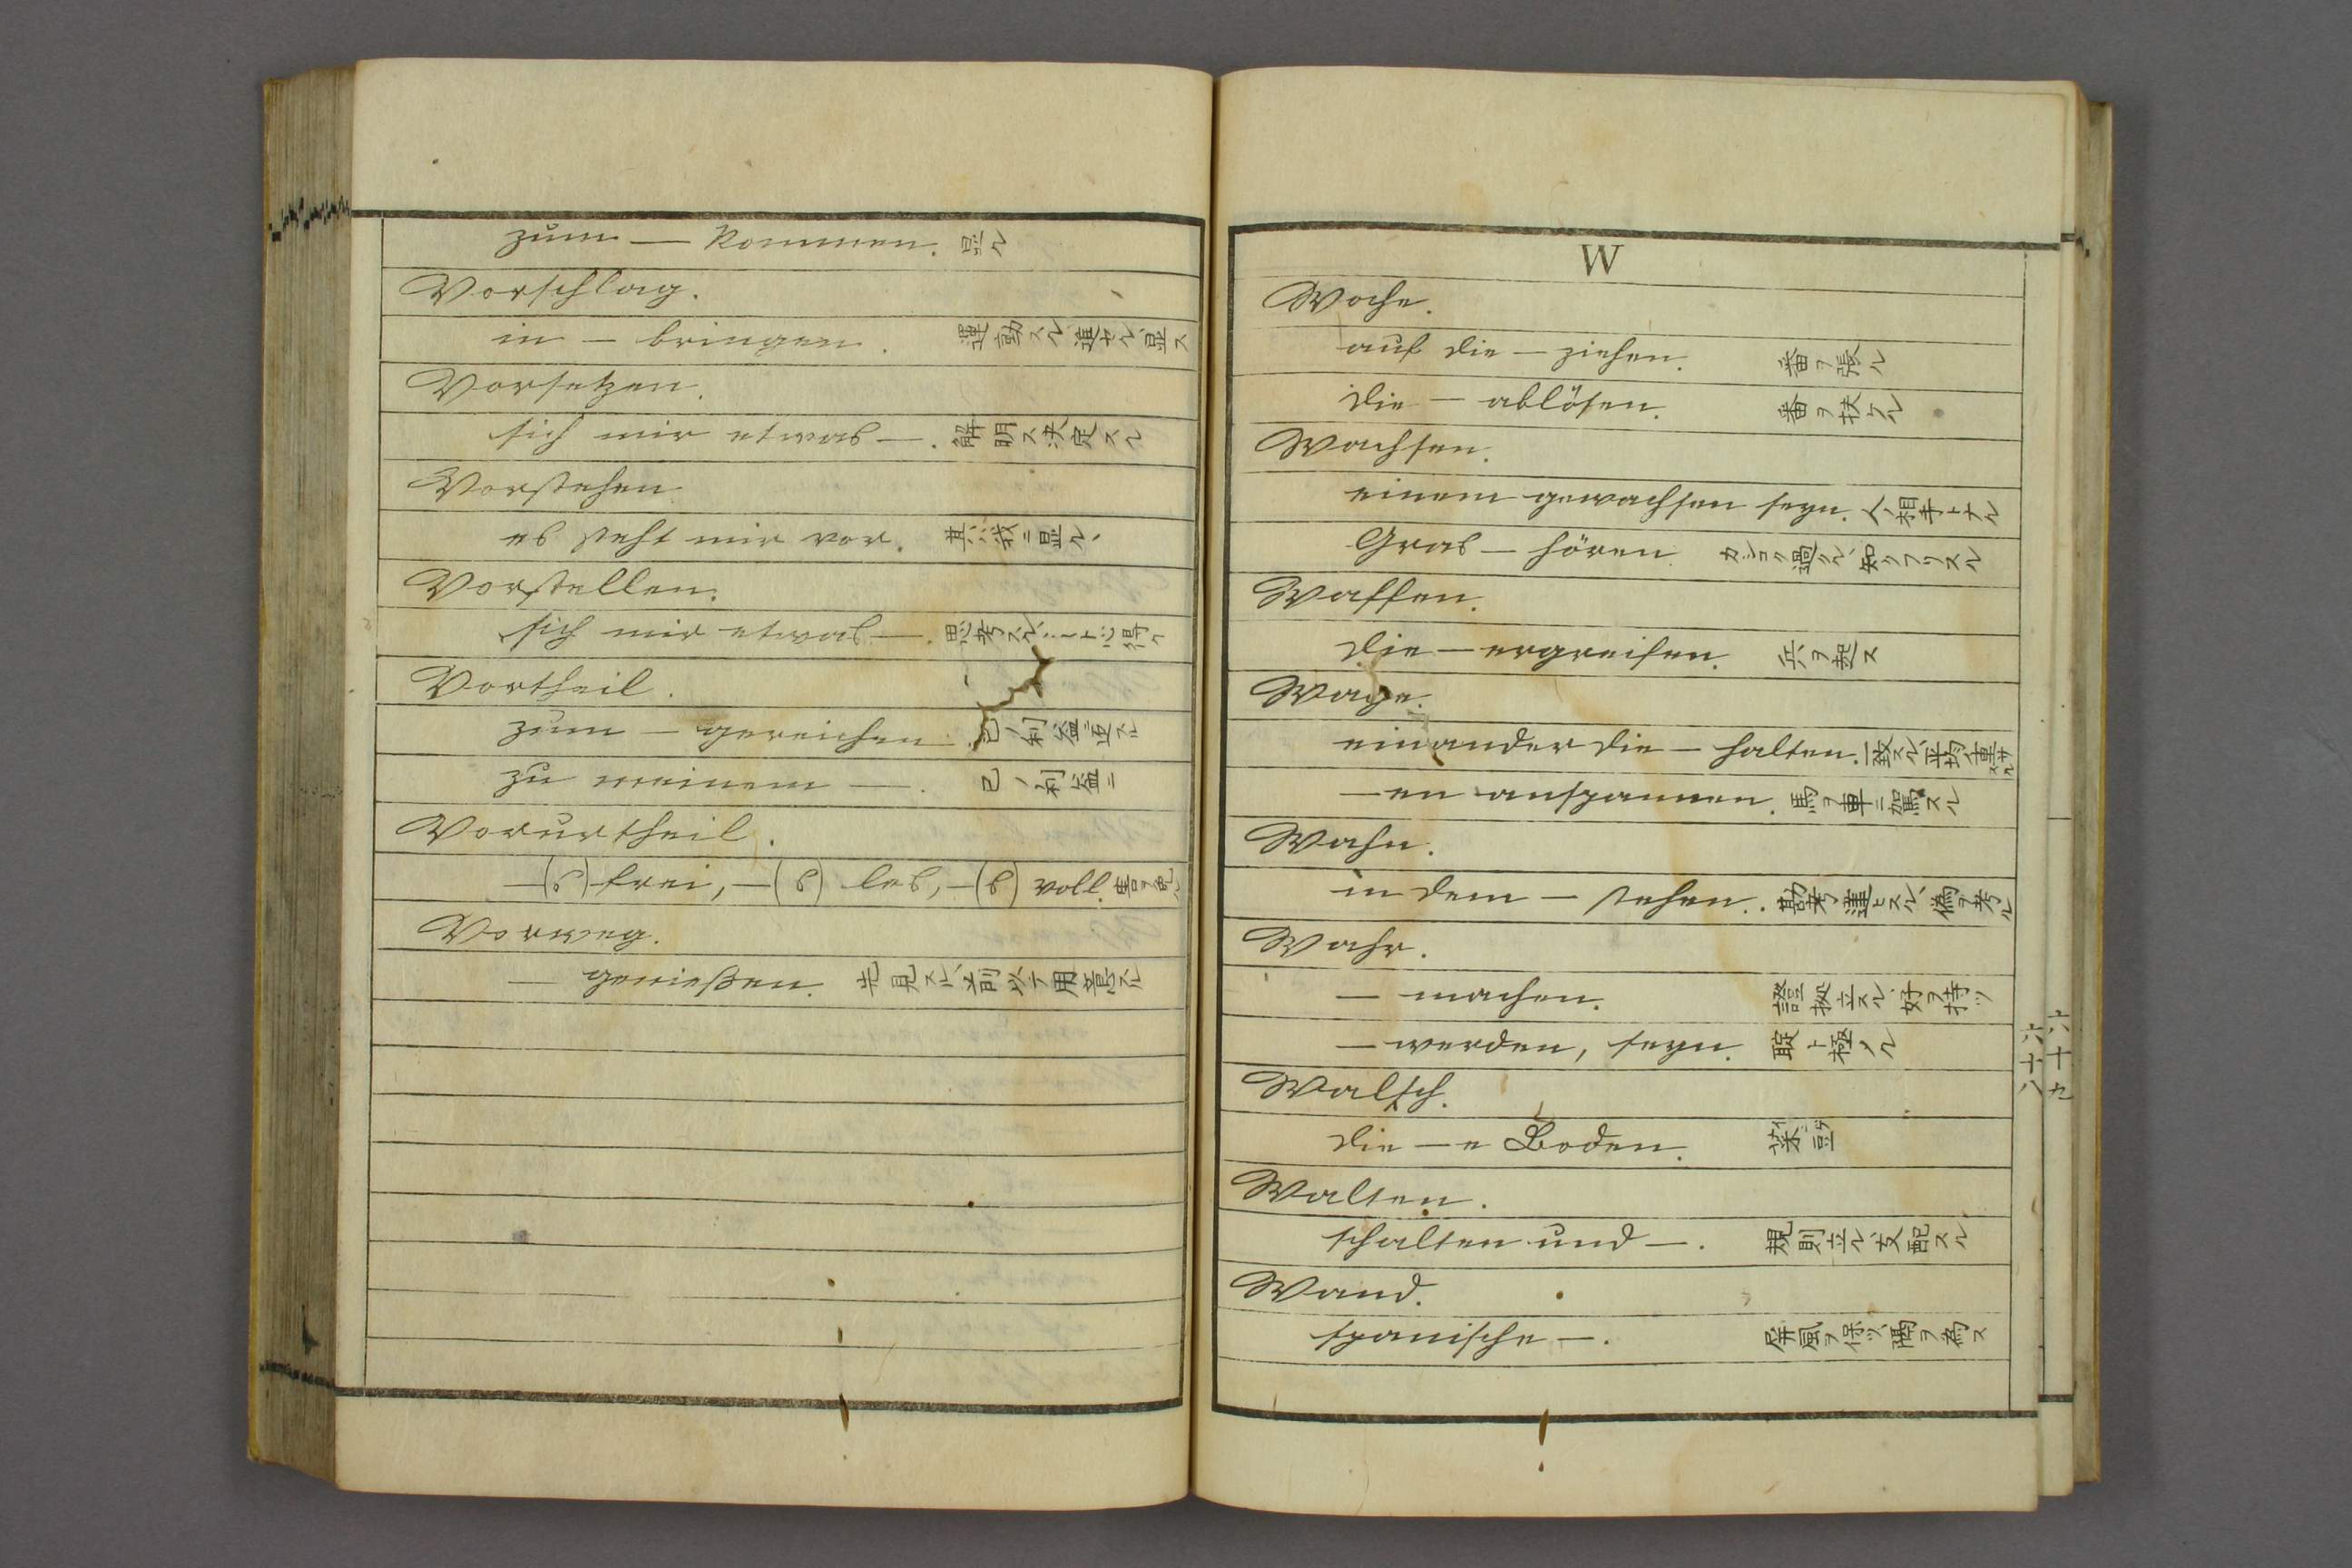 zum — kommen. 显ル
Vorschlag.
in — bringen. 運動スル進セル显ス
Vorsetzen.
sich mir etwas —. 解明ス決定スル
Vorstehen
es steht mir vor. 其ハ我ニ显ル
Vorstellen.
sich mir etwas —. 思考スル
Vortheil.
zum — gereichen. 己ノ利益
zu meinem —. 己ノ利益ニ
Vorurtheil.
—(s) frei, —(s) los, —(s) voll.
Vorweg.
— genießen. 先見スル前以テ用意スル
W
Wache.
auf die — ziehen. 番ヲ張ル
die — ablösen. 番ヲ扶クル
Wachsen.
einem gewachsen seyn. 人ノ相手トナル
Gras — hören. カシコク過クル、知ツフリスル
Waffen.
die — ergreifen. 兵ヲ起ス
Wage.
einander die — halten. 一致スル平均
—en anspannen. 馬ヲ車ニ駕スル
Wahn.
in dem — stehen. 勘考違ヒスル、偽ヲ考ル
Wahr.
— machen. 證拠立スル、好ヲ持ツ
— werden, seyn. 聢ト極ノル
Walsch.
die —e Boden. 菜豆
Walten.
schalten und —. 規則立ル支配スル
Wand.
spanische —. 屏風ヲ保ツ、隔ヲ為ス
六十八
六十九